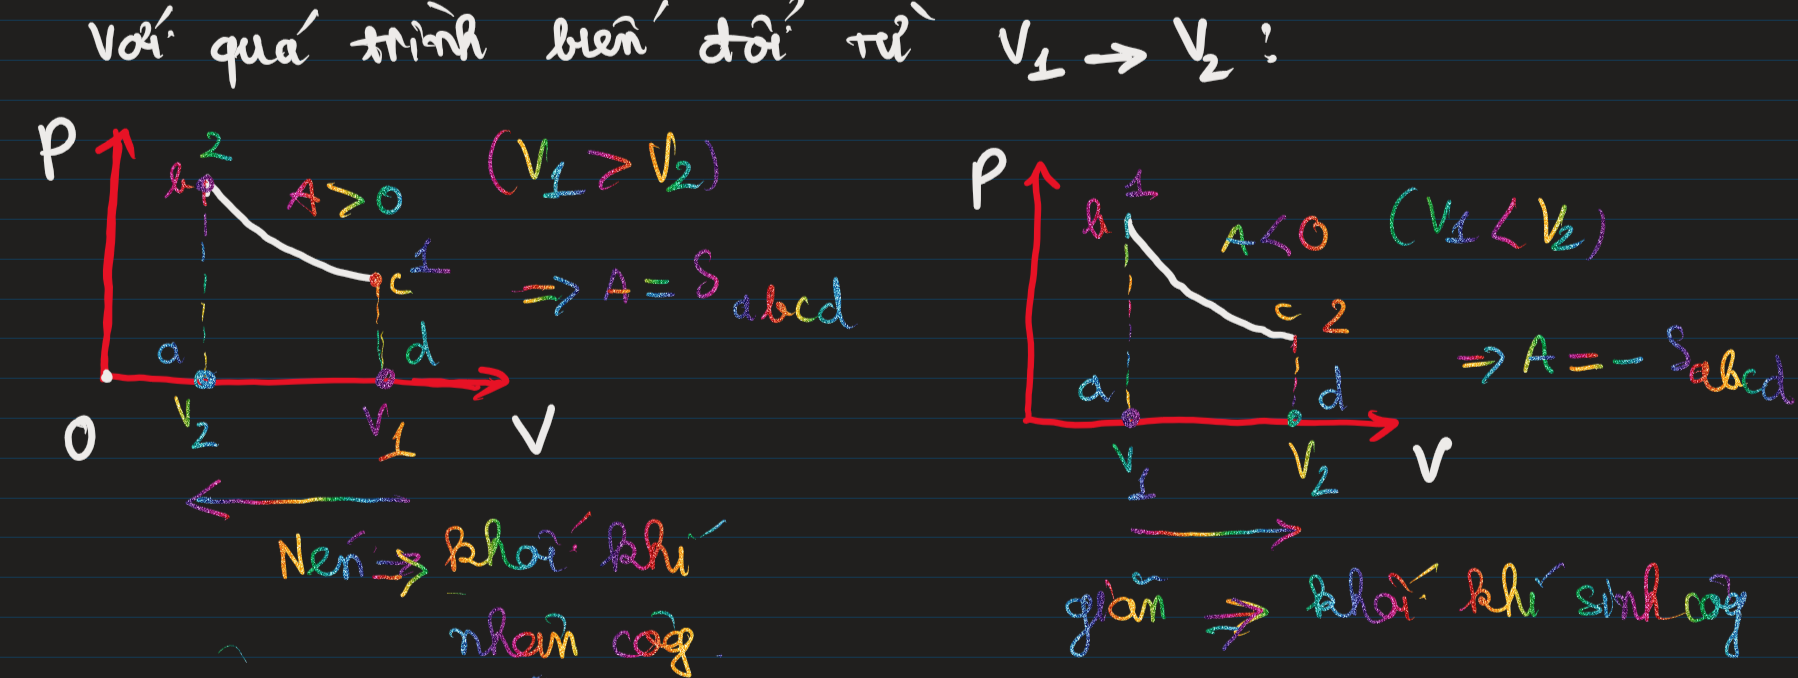 Với quá trình biến đổi từ V1 → V2:
P
2
b
A > 0
(V1 > V2)
1
c
⇒ A = S abcd
a
d
O
V2
V1
V
Nén ⇒ khối khí
nhận công
P
1
b
A < 0
(V1 < V2)
c 2
⇒ A = - S abcd
a
d
V1
V2
V
giãn ⇒ khối khí sinh công